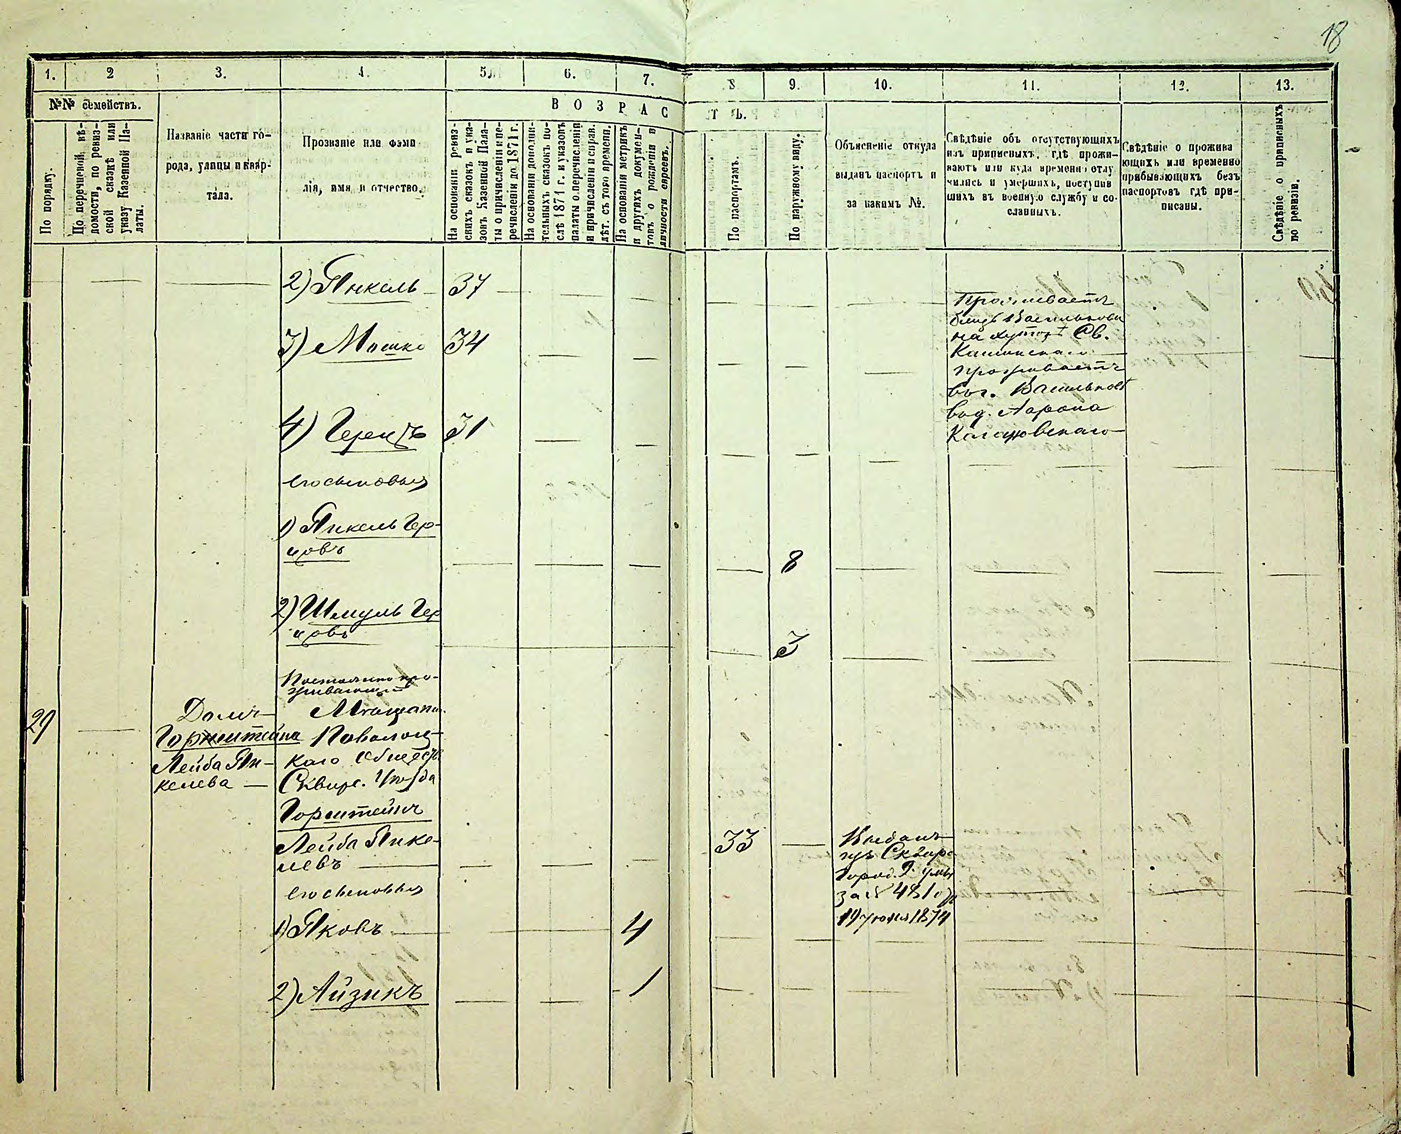 18
1. 2 3. 4. 5. 6. 7. 8 9. 10. 11. 12. 13.
№№ семействъ.
По порядку.
По перечневой, вѣ-
домости, по ревиз-
ской сказкѣ или
указу Казенной Па-
латы.
Названіе части го-
рода, улицы и квар-
тала.
Прозваніе или фами
лія, имя и отчество.
ВОЗРАСТЪ.
На основаніи ревиз-
скихъ сказокъ и ука-
зовъ Казенной Пала-
ты о причисленіи и пе-
речисленіи до 1871 г.
На основаніи дополни-
тельныхъ сказокъ по-
слѣ 1871 г. и указовъ
палаты о перечисленіи
и причисленіи и справ.
лѣт. съ того времени.
На основаніи метрикъ
и другихъ докумен-
товъ о рожденіи и
личности евреевъ.
По паспортамъ.
По наружному виду.
Объясненіе откуда
выданъ паспортъ и
за какимъ №.
Свѣдѣніе объ отсутствующихъ
изъ приписныхъ, гдѣ прожи-
ваютъ или куда временно отлу
чились и умершихъ, поступив
шихъ въ военную службу и со-
сланныхъ.
Свѣдѣніе о прожива
ющихъ или временно
прибывающихъ безъ
паспортовъ гдѣ при-
писаны.
Свѣдѣніе о приписныхъ
по ревизіи.
2) Янкель 37
Проживаетъ
близь Василькова
на хуторѣ Св.
3) Мошко 34
проживаетъ
въ г. Васильковѣ
4) Герецъ 31
его сыновья
1) Янкель Гер-
цовъ
8
2) Шмуль Гер
цовъ
3
Постоянно про-
живающій
29
Домъ
Горнштейна
Лейба Ян-
келева
Мѣщанин.
Паволоч-
каго Обществ.
Сквирс. Уѣзда
Горнштейнъ
Лейба Янке-
левъ
33
Выданъ
изъ Сквирс
Город.
за № 481
19 Іюня 1874
его сыновья
1) Яковъ 4
2) Айзикъ 1